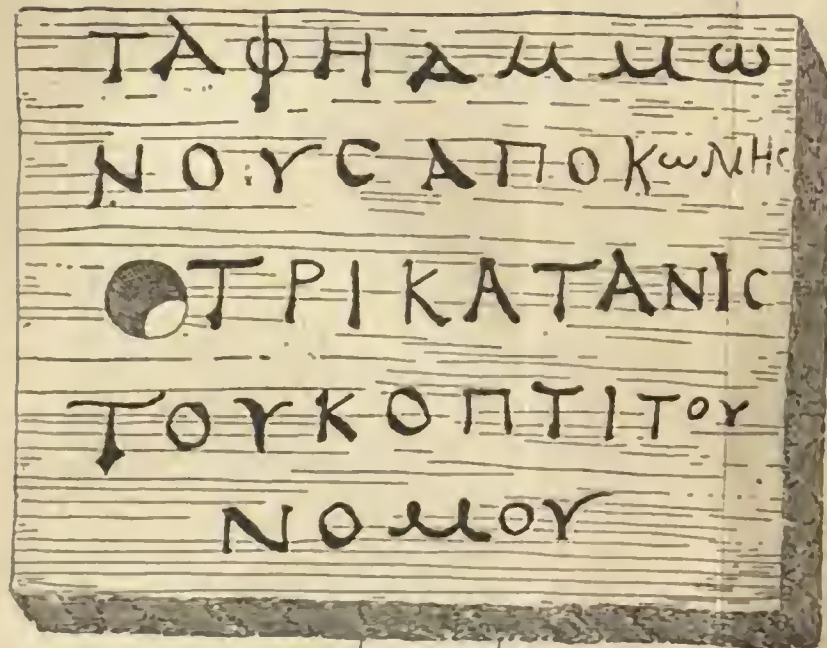 ΤΑΦΗΑΜΜΩ
ΝΟΥϹΑΠΟΚΩΜΗϹ
ΤΡΙΚΑΤΑΝΙϹ
ΤΟΥΚΟΠΤΙΤΟΥ
ΝΟΜΟΥ